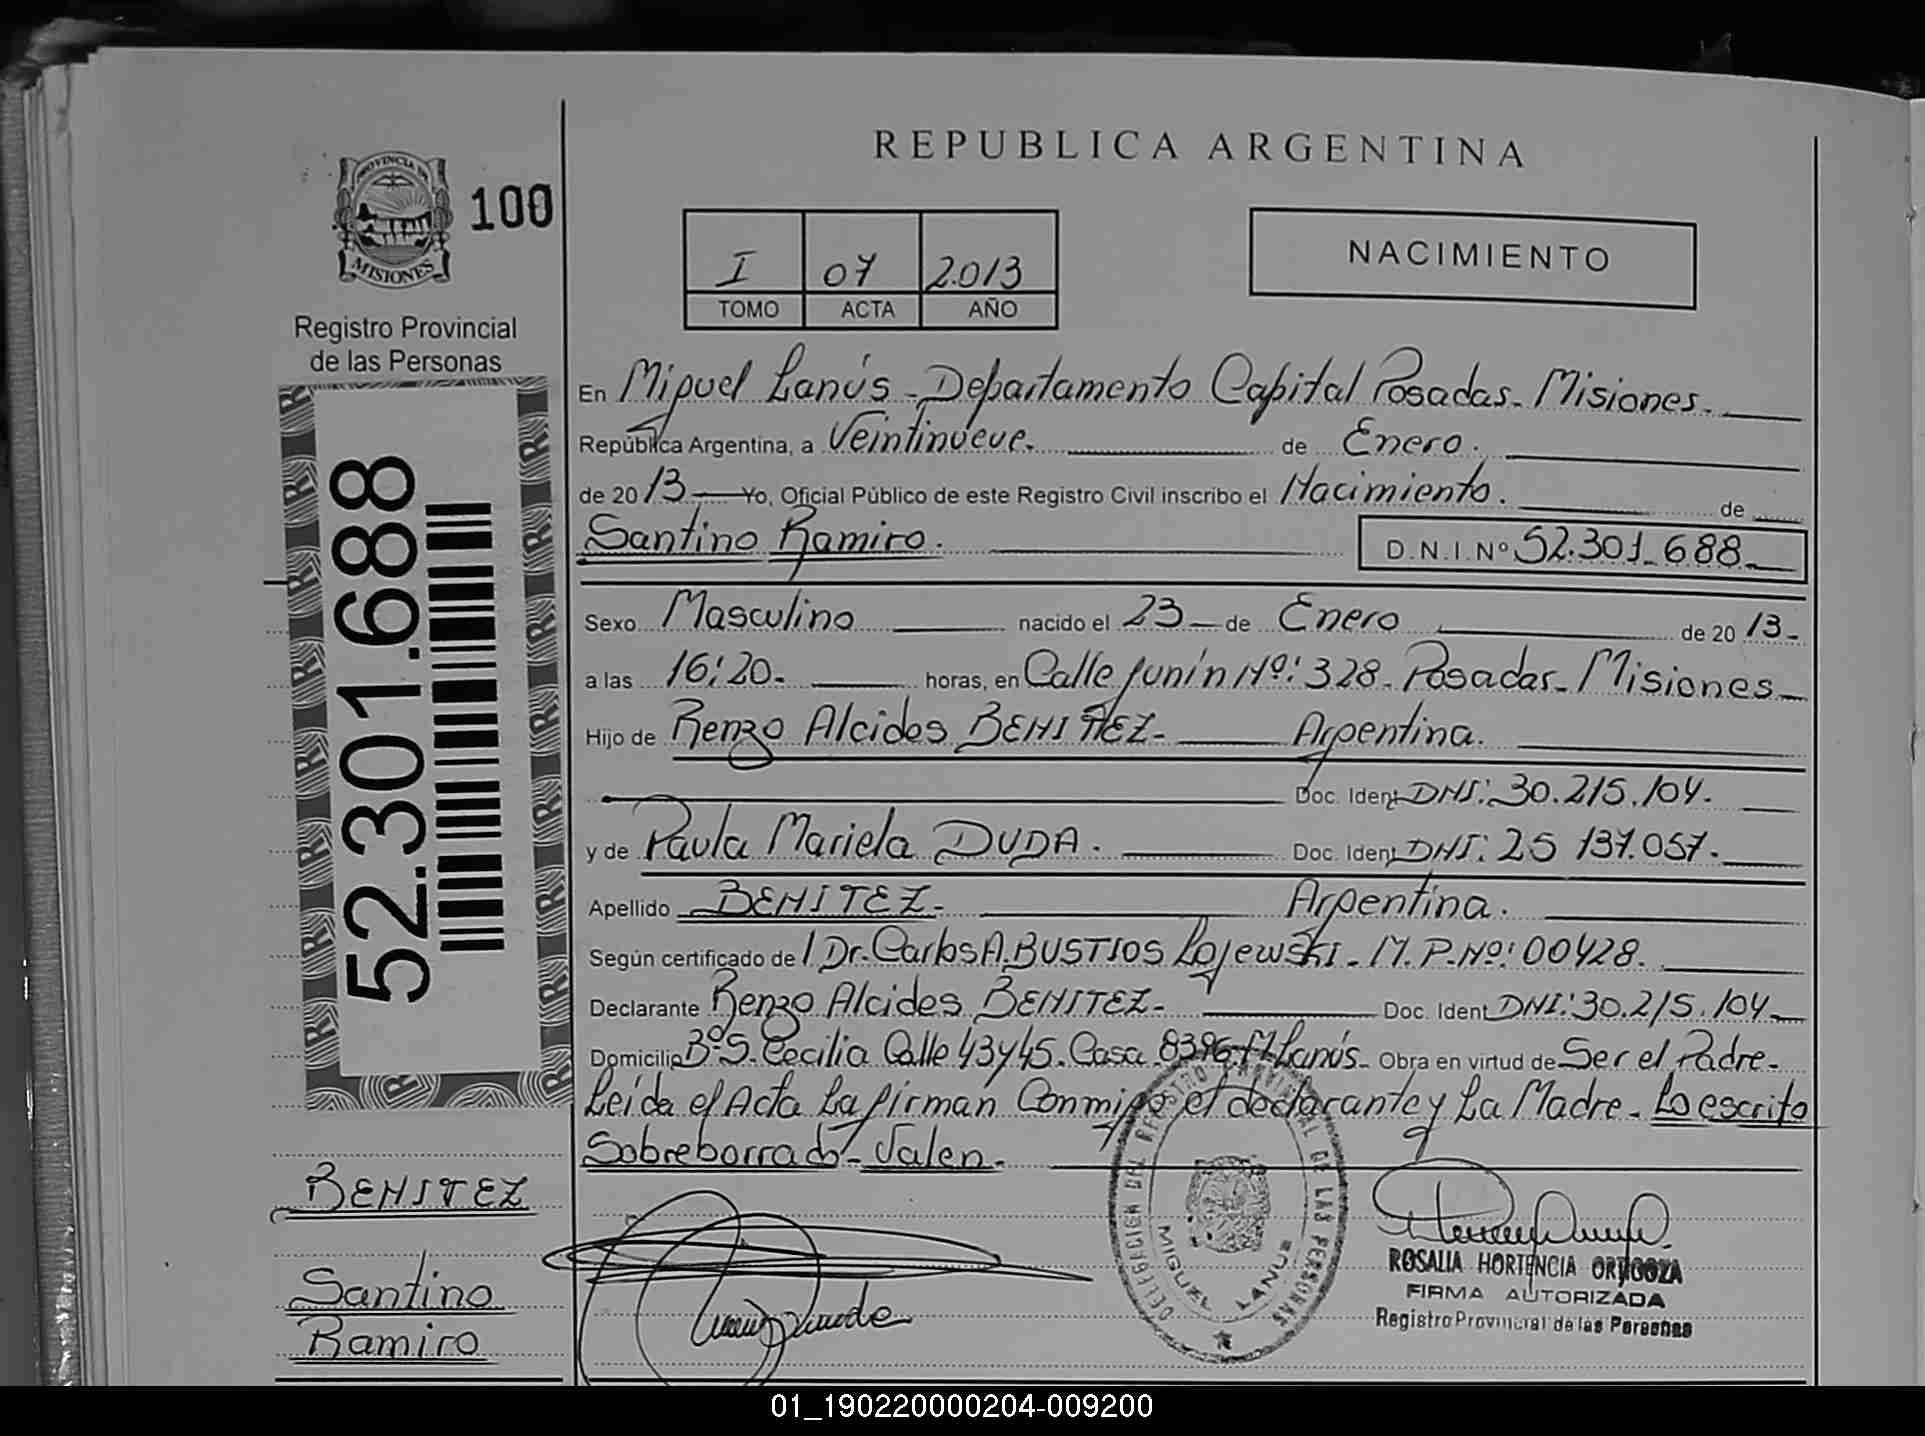 REPUBLICA ARGENTINA
PROVINCIA DE
MISIONES
100
Registro Provincial
de las Personas
52.301.688
I 07 2.013
TOMO ACTA AÑO
NACIMIENTO
En Miguel Lanús - Departamento Capital Posadas - Misiones.
República Argentina, a Veintinueve. de Enero.
de 2013 Yo, Oficial Público de este Registro Civil inscribo el Nacimiento. de
Santino Ramiro. D.N.I.Nº 52.301.688
Sexo Masculino nacido el 23 de Enero de 2013-
a las 16:20- horas, en Calle Junín Nº: 328. Posadas - Misiones
Hijo de Renzo Alcides BENITEZ- Argentina.
Doc. Ident DNI: 30.215.104.
y de Paula Mariela DUDA. Doc. Ident DNI: 25 137.057.
Apellido BENITEZ- Argentina.
Según certificado de Dr. Carlos A. BUSTIOS Lojewski - M.P.Nº: 00428.
Declarante Renzo Alcides BENITEZ- Doc. Ident DNI: 30.215.104
Domicilio Bº S. Cecilia Calle 43 y 45. Casa 8396 M Lanús- Obra en virtud de Ser el Padre-
Leída el Acta La firman Conmigo el declarante y La Madre - Lo escrito
Sobreborrado - Valen-
BENITEZ
Santino
Ramiro
DELEGACION DEL REGISTRO PROVINCIAL DE LAS PERSONAS
MIGUEL LANUS
ROSALIA HORTENCIA ORTGOZA
FIRMA AUTORIZADA
Registro Provincial de las Personas
01_190220000204-009200